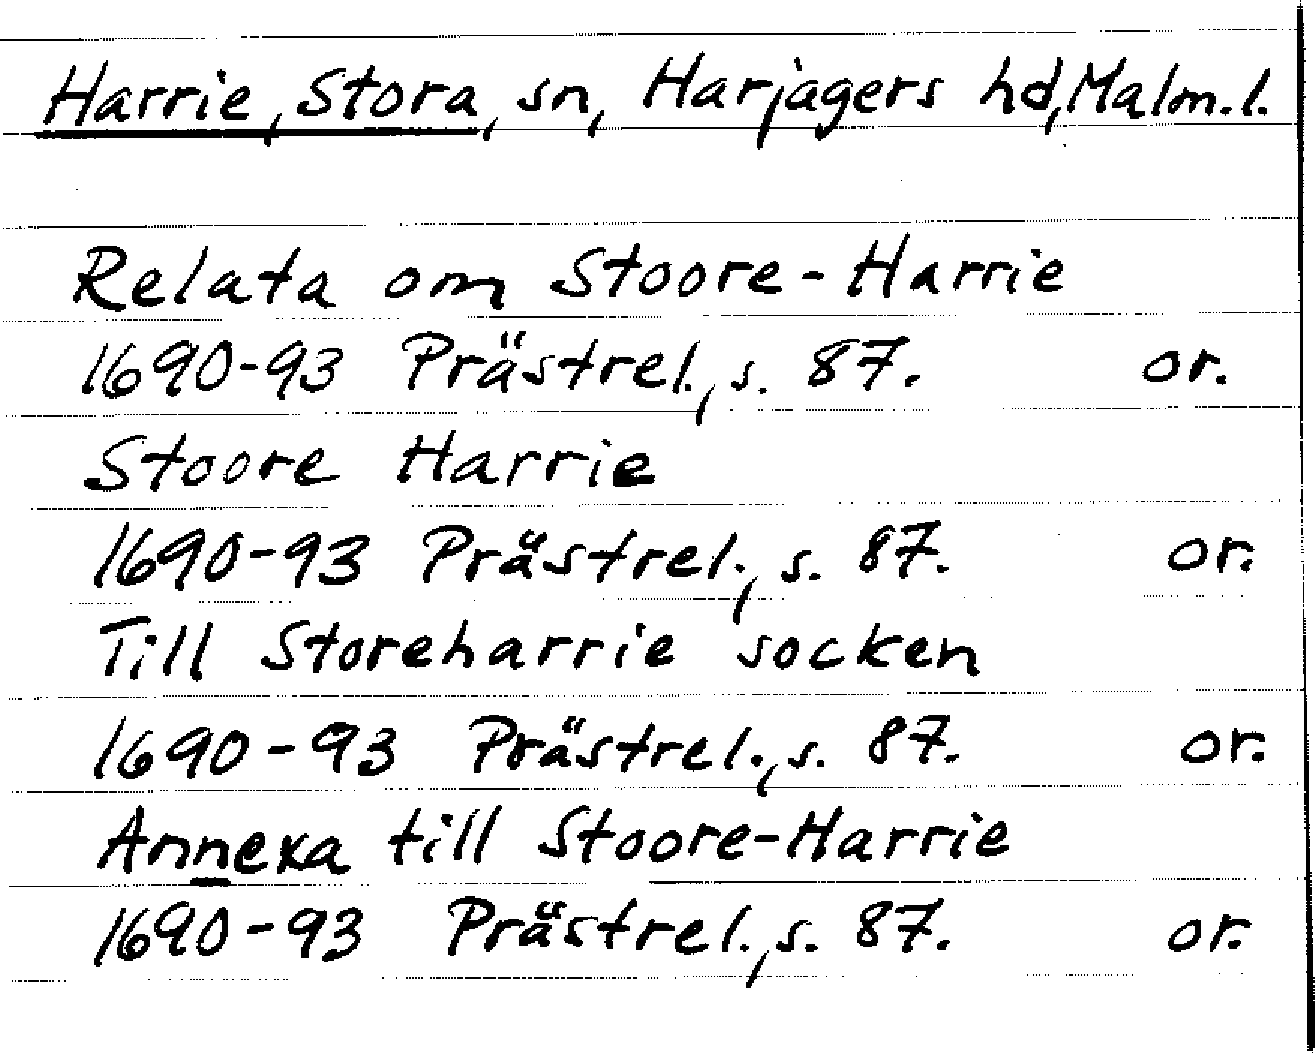 Harrie, Stora, sn, Harjagers hd, Malm. l.
Relata om Stoore-Harrie
1690-93 Prästrel., s. 87. or.
Stoore Harrie
1690-93 Prästrel., s. 87. or.
Till Storeharrie socken
1690-93 Prästrel., s. 87. or.
Annexa till Stoore-Harrie
1690-93 Prästrel., s. 87. or.